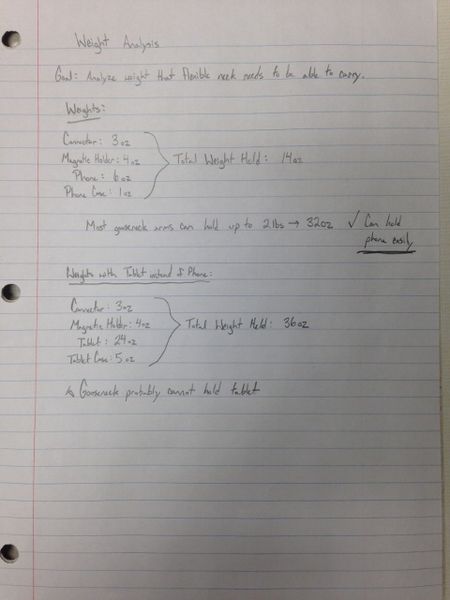 Weight Analysis
Goal: Analyze weight that flexible neck needs to be able to carry.
Weights:
Connector: 3oz
Magnetic Holder: 4oz
Phone: 6oz
Phone Case: 1oz
Total Weight Held: 14oz
Most gooseneck arms can hold up to 2lbs → 32oz ✓ Can hold
phone easily
Weights with Tablet instead of Phone:
Connector: 3oz
Magnetic Holder: 4oz
Tablet: 24oz
Tablet Case: 5oz
Total Weight Held: 36oz
Gooseneck probably cannot hold tablet